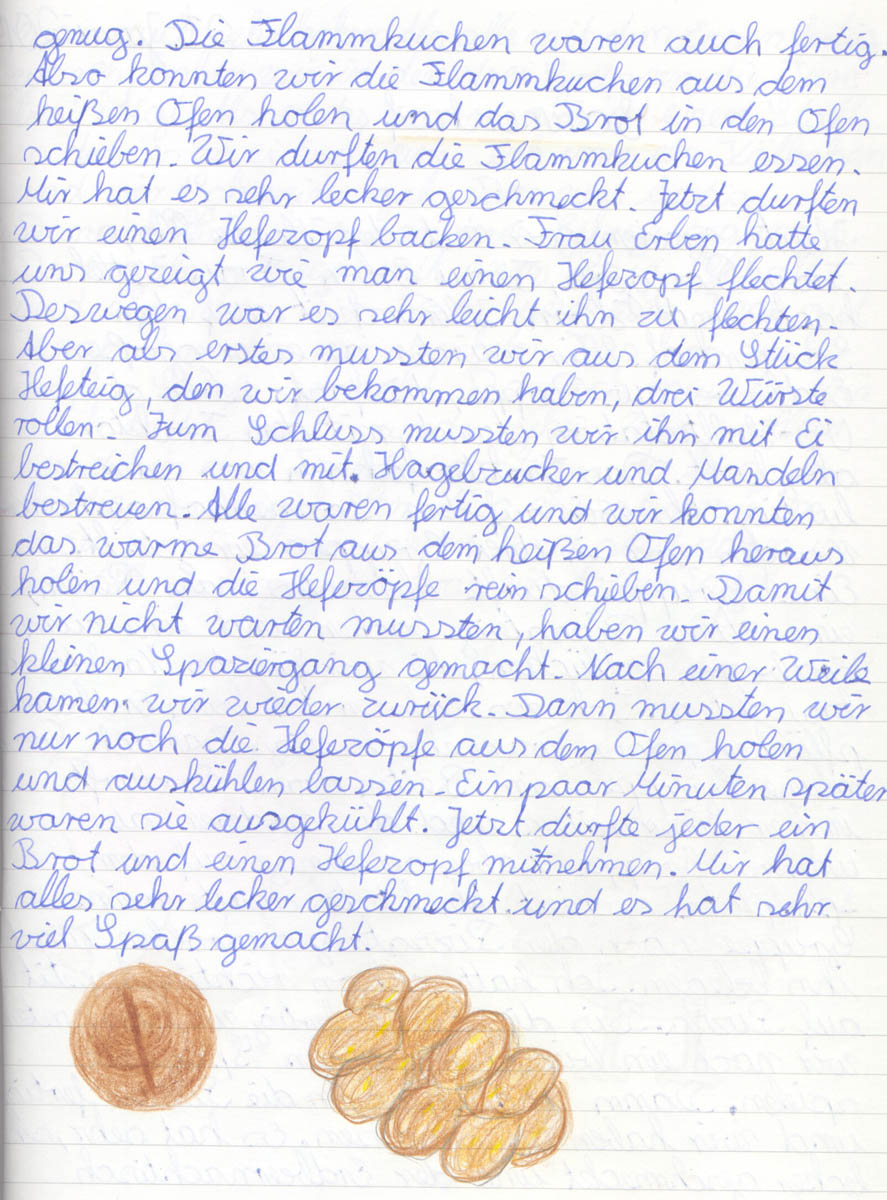 genug. Die Flammkuchen waren auch fertig.
Also konnten wir die Flammkuchen aus dem
heißen Ofen holen und das Brot in den Ofen
schieben. Wir durften die Flammkuchen essen.
Mir hat es sehr lecker geschmeckt. Jetzt durften
wir einen Hefezopf backen. Frau Erben hatte
uns gezeigt wie man einen Hefezopf flechtet.
Deswegen war es sehr leicht ihn zu flechten.
Aber als erstes mussten wir aus dem Stück
Hefeteig, den wir bekommen haben, drei Würste
rollen. Zum Schluss mussten wir ihn mit Ei
bestreichen und mit Hagelzucker und Mandeln
bestreuen. Alle waren fertig und wir konnten
das warme Brot aus dem heißen Ofen heraus
holen und die Hefezöpfe rein schieben. Damit
wir nicht warten mussten, haben wir einen
kleinen Spaziergang gemacht. Nach einer Weile
kamen wir wieder zurück. Dann mussten wir
nur noch die Hefezöpfe aus dem Ofen holen
und auskühlen lassen. Ein paar Minuten später
waren sie ausgekühlt. Jetzt durfte jeder ein
Brot und einen Hefezopf mitnehmen. Mir hat
alles sehr lecker geschmeckt und es hat sehr
viel Spaß gemacht.